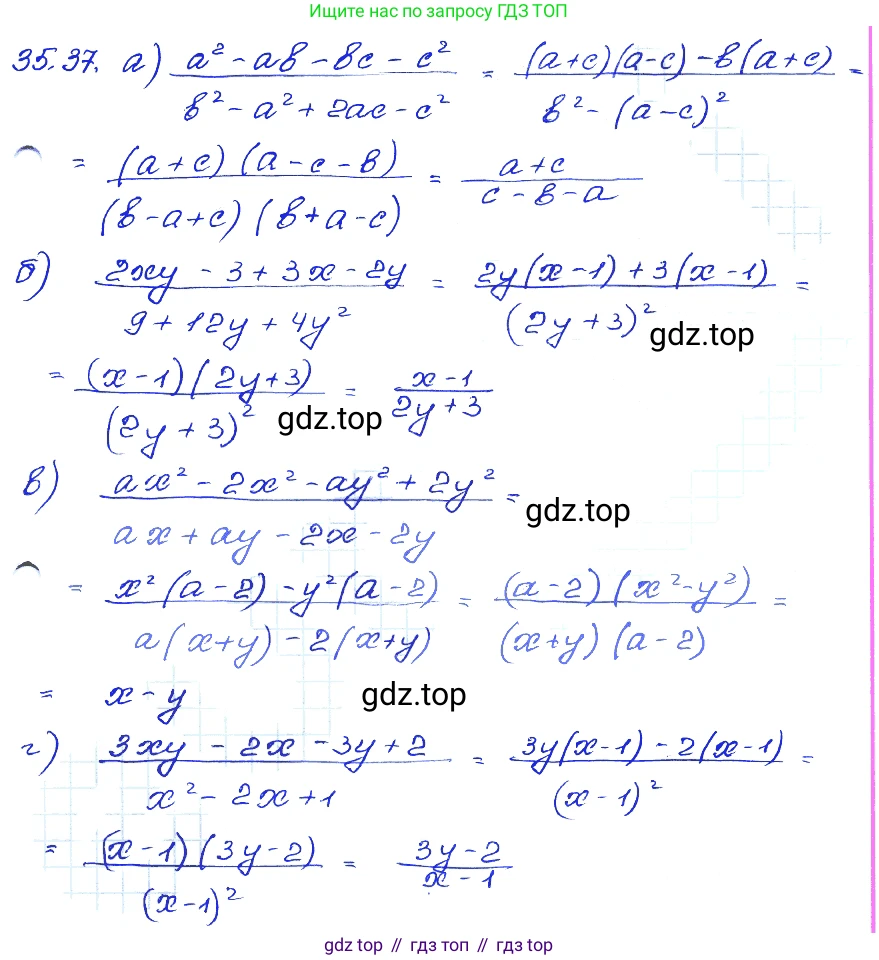 Ищите нас по запросу ГДЗ ТОП
35.37. а) (a² - ab - bc - c²) / (b² - a² + 2ac - c²) = ((a+c)(a-c) - b(a+c)) / (b² - (a-c)²) =
= ((a+c)(a-c-b)) / ((b-a+c)(b+a-c)) = (a+c) / (c-b-a)
б) (2xy - 3 + 3x - 2y) / (9 + 12y + 4y²) = (2y(x-1) + 3(x-1)) / (2y+3)² =
gdz.top
= ((x-1)(2y+3)) / (2y+3)² = (x-1) / (2y+3)
gdz.top
в) (ax² - 2x² - ay² + 2y²) / (ax + ay - 2x - 2y) =
gdz.top
= (x²(a-2) - y²(a-2)) / (a(x+y) - 2(x+y)) = ((a-2)(x²-y²)) / ((x+y)(a-2)) =
= x - y
gdz.top
г) (3xy - 2x - 3y + 2) / (x² - 2x + 1) = (3y(x-1) - 2(x-1)) / (x-1)² =
= ((x-1)(3y-2)) / (x-1)² = (3y-2) / (x-1)
gdz top // гдз топ // gdz top